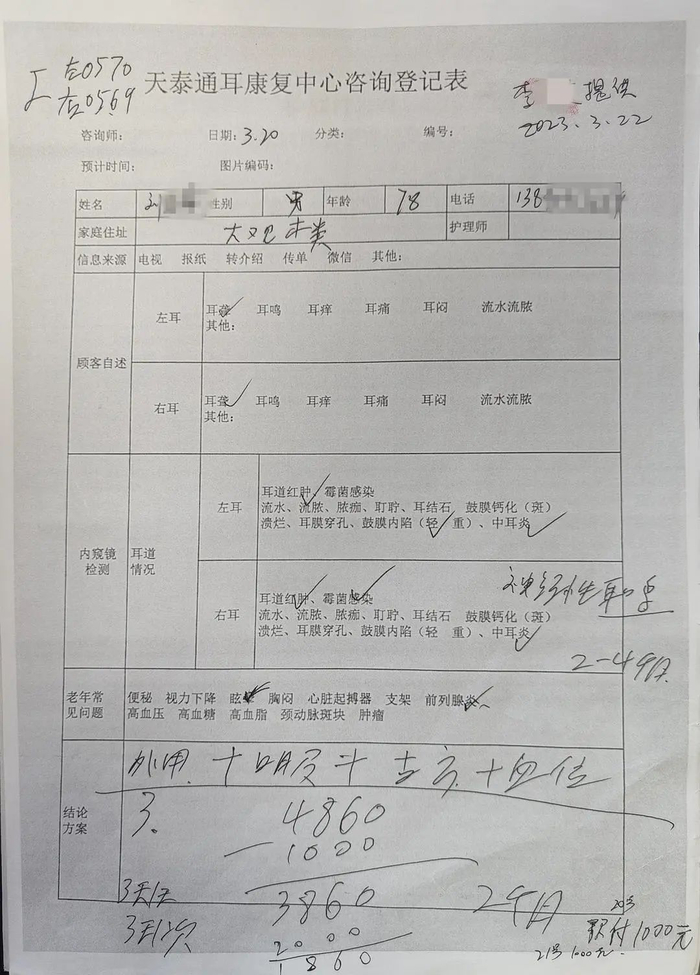 右0570
左0569
天泰通耳康复中心咨询登记表
李 提供
2023.3.22
咨询师： 日期：3.20 分类： 编号：
预计时间： 图片编码：
姓名 刘 性别 男 年龄 78 电话 138
家庭住址 护理师
信息来源 电视 报纸 转介绍 传单 微信 其他：
顾客自述
左耳
耳聋 耳鸣 耳痒 耳痛 耳闷 流水流脓
其他：
右耳
耳聋 耳鸣 耳痒 耳痛 耳闷 流水流脓
其他：
内窥镜检测
耳道情况
左耳
耳道红肿、霉菌感染
流水、流脓、脓痂、耵聍、耳结石 鼓膜钙化（斑）
溃烂、耳膜穿孔、鼓膜内陷（轻 重）、中耳炎
右耳
耳道红肿、霉菌感染
流水、流脓、脓痂、耵聍、耳结石 鼓膜钙化（斑）
溃烂、耳膜穿孔、鼓膜内陷（轻 重）、中耳炎
神经性耳聋
2-4个月
老年常见问题
便秘 视力下降 眩晕 胸闷 心脏起搏器 支架 前列腺炎
高血压 高血糖 高血脂 颈动脉斑块 肿瘤
结论方案
外用 + 口服 + + 血位
3. 4860
-1000
3860 2个月
2000
1860
20号
现付1000元
21号 1000元